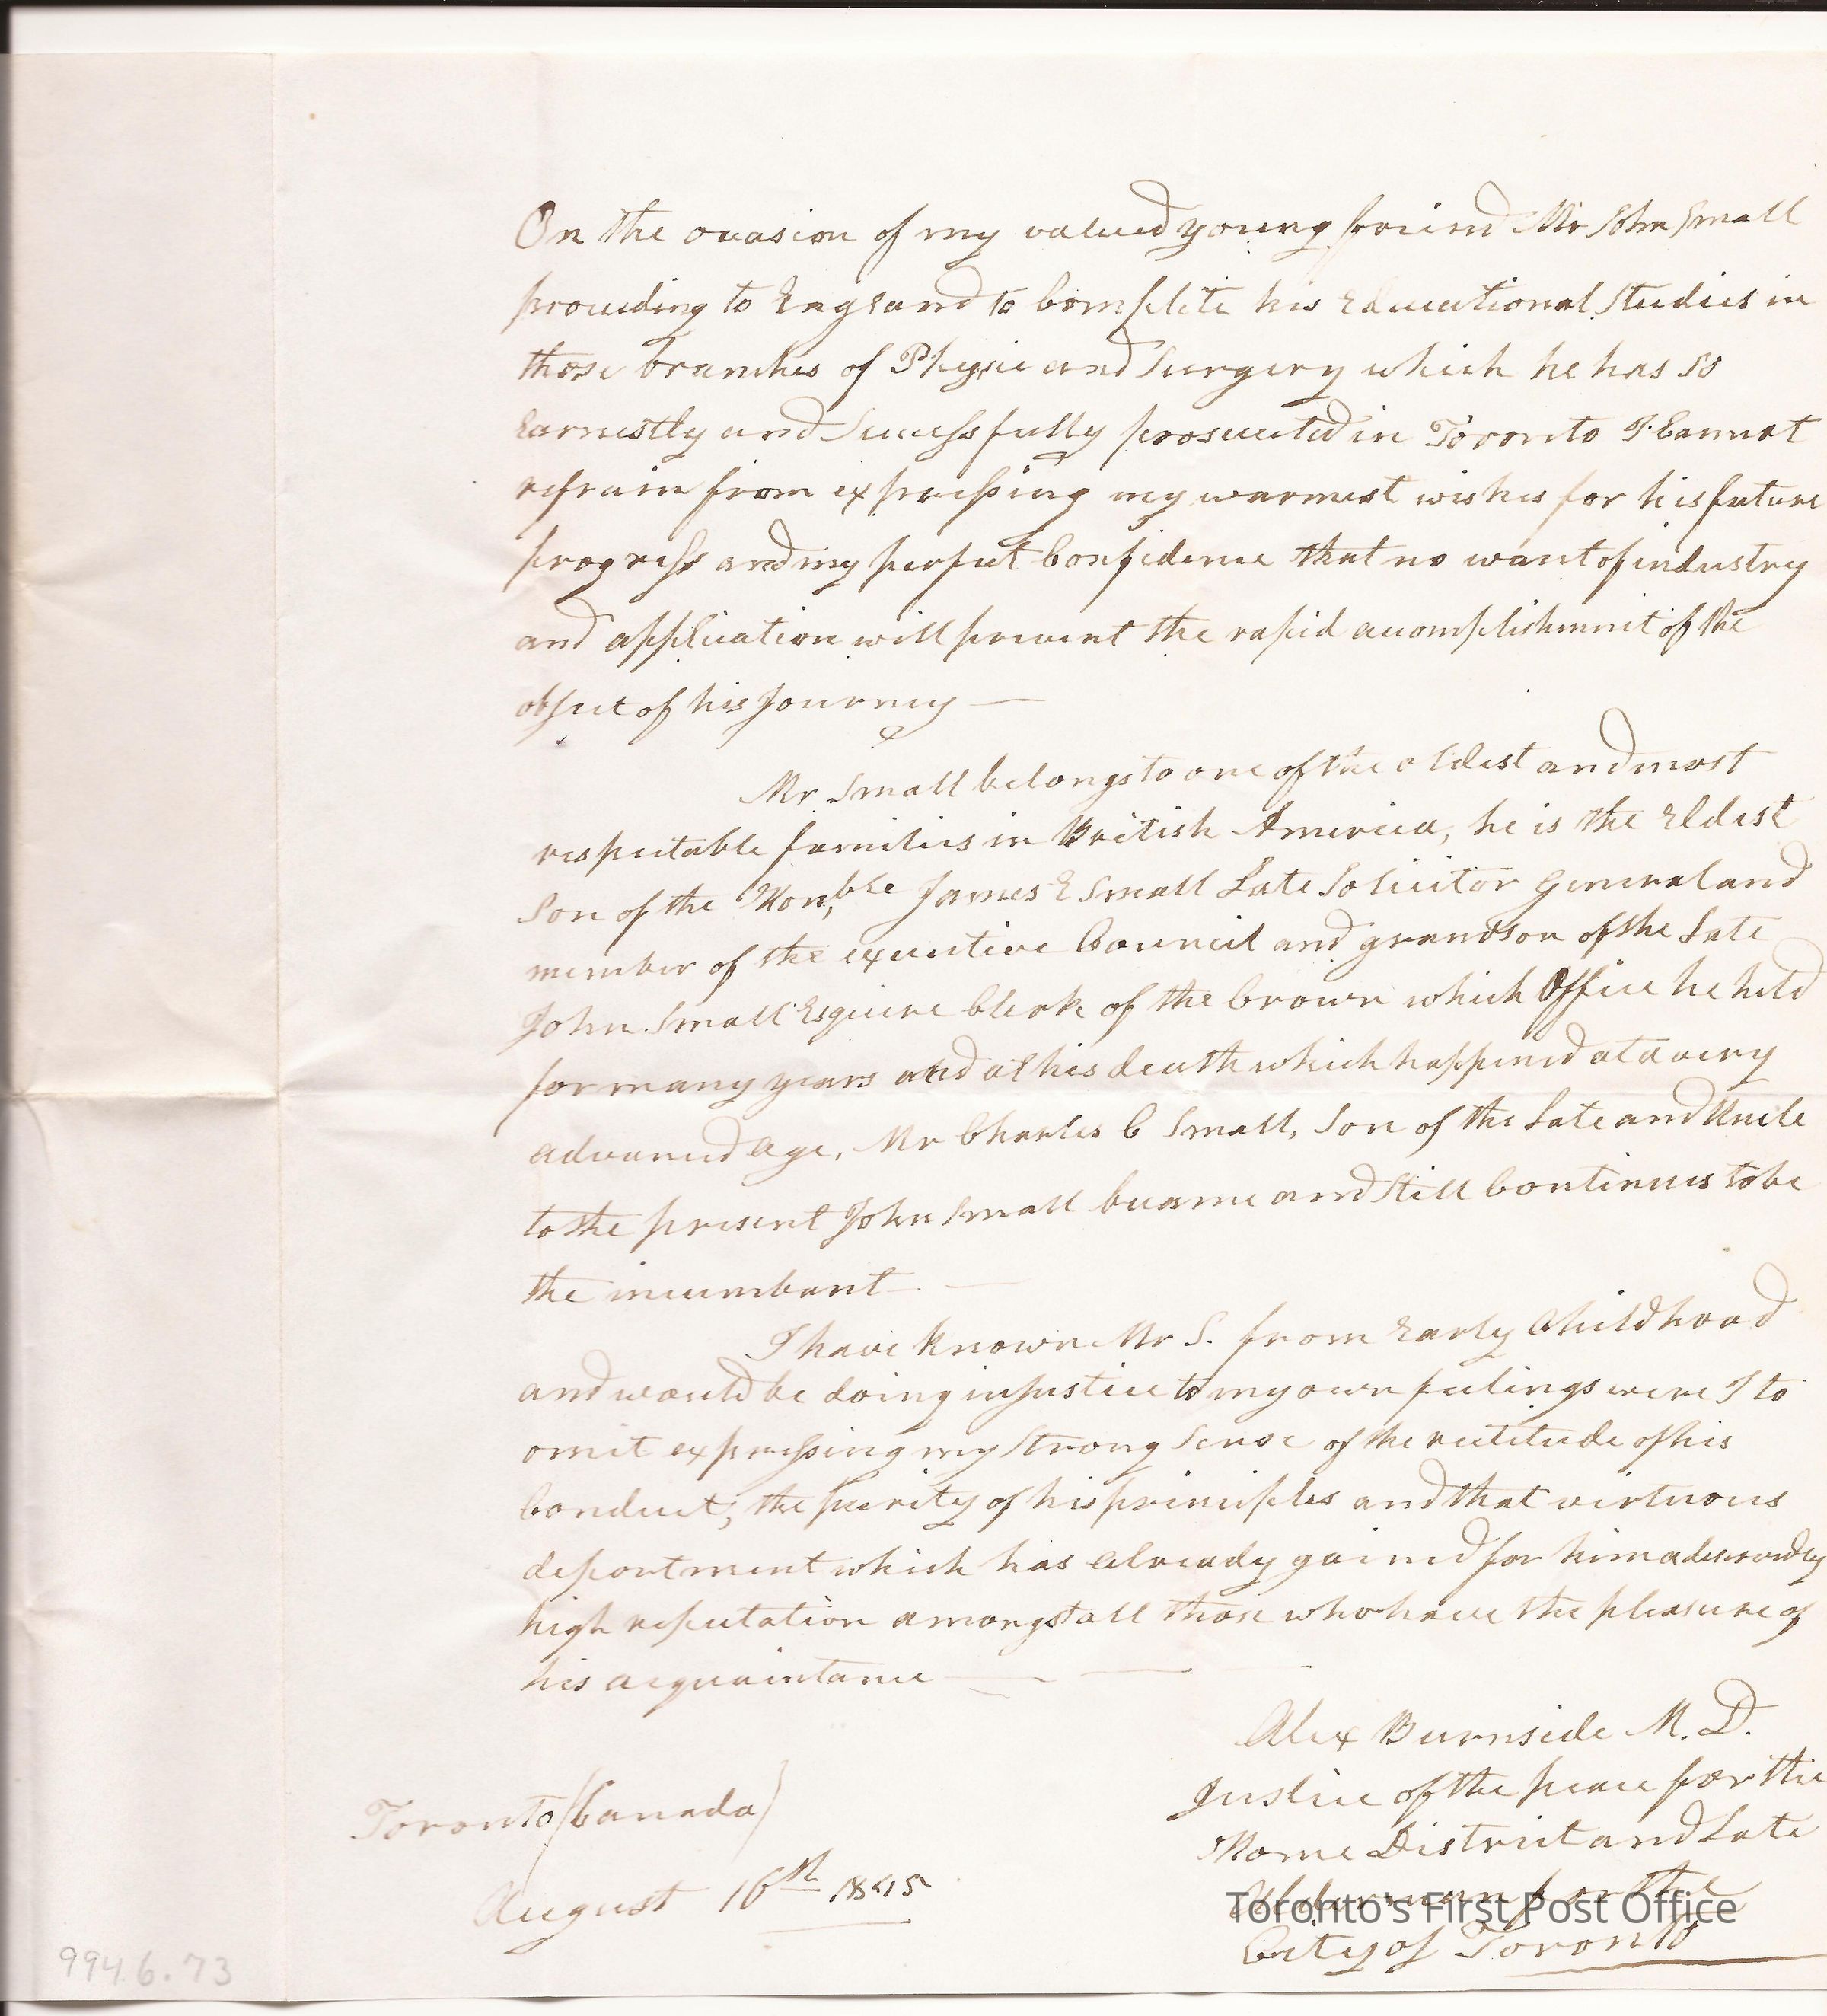 On the occasion of my valued young friend Mr John Small
proceeding to England to Complete his Educational Studies in
those branches of Physic and Surgery which he has so
Earnestly and Successfully prosecuted in Toronto I Cannot
refrain from expressing my warmest wishes for his future
progress and my perfect Confidence that no want of industry
and application will prevent the rapid accomplishment of the
object of his Journey —
Mr Small belongs to one of the oldest and most
respectable families in British America, he is the Eldest
Son of the Honble James E Small Late Solicitor General and
member of the executive Council and grandson of the Late
John Small Esquire Clerk of the Crown which Office he held
for many years and at his death which happened at a very
advanced age, Mr Charles C Small, Son of the Late and Uncle
to the present John Small became and Still Continues to be
the incumbant —
I have known Mr S. from Early Childhood
and would be doing injustice to my own feelings were I to
omit expressing my Strong Sense of the rectitude of his
Conduct, the purity of his principles and that virtuous
deportment which has already gained for him a deservedly
high reputation amongst all those who have the pleasure of
his acquaintance —
Alex Burnside M.D.
Justice of the peace for the
Home District and Late
Alderman for the
City of Toronto
Toronto (Canada)
August 16th 1845
Toronto's First Post Office
994.6.73